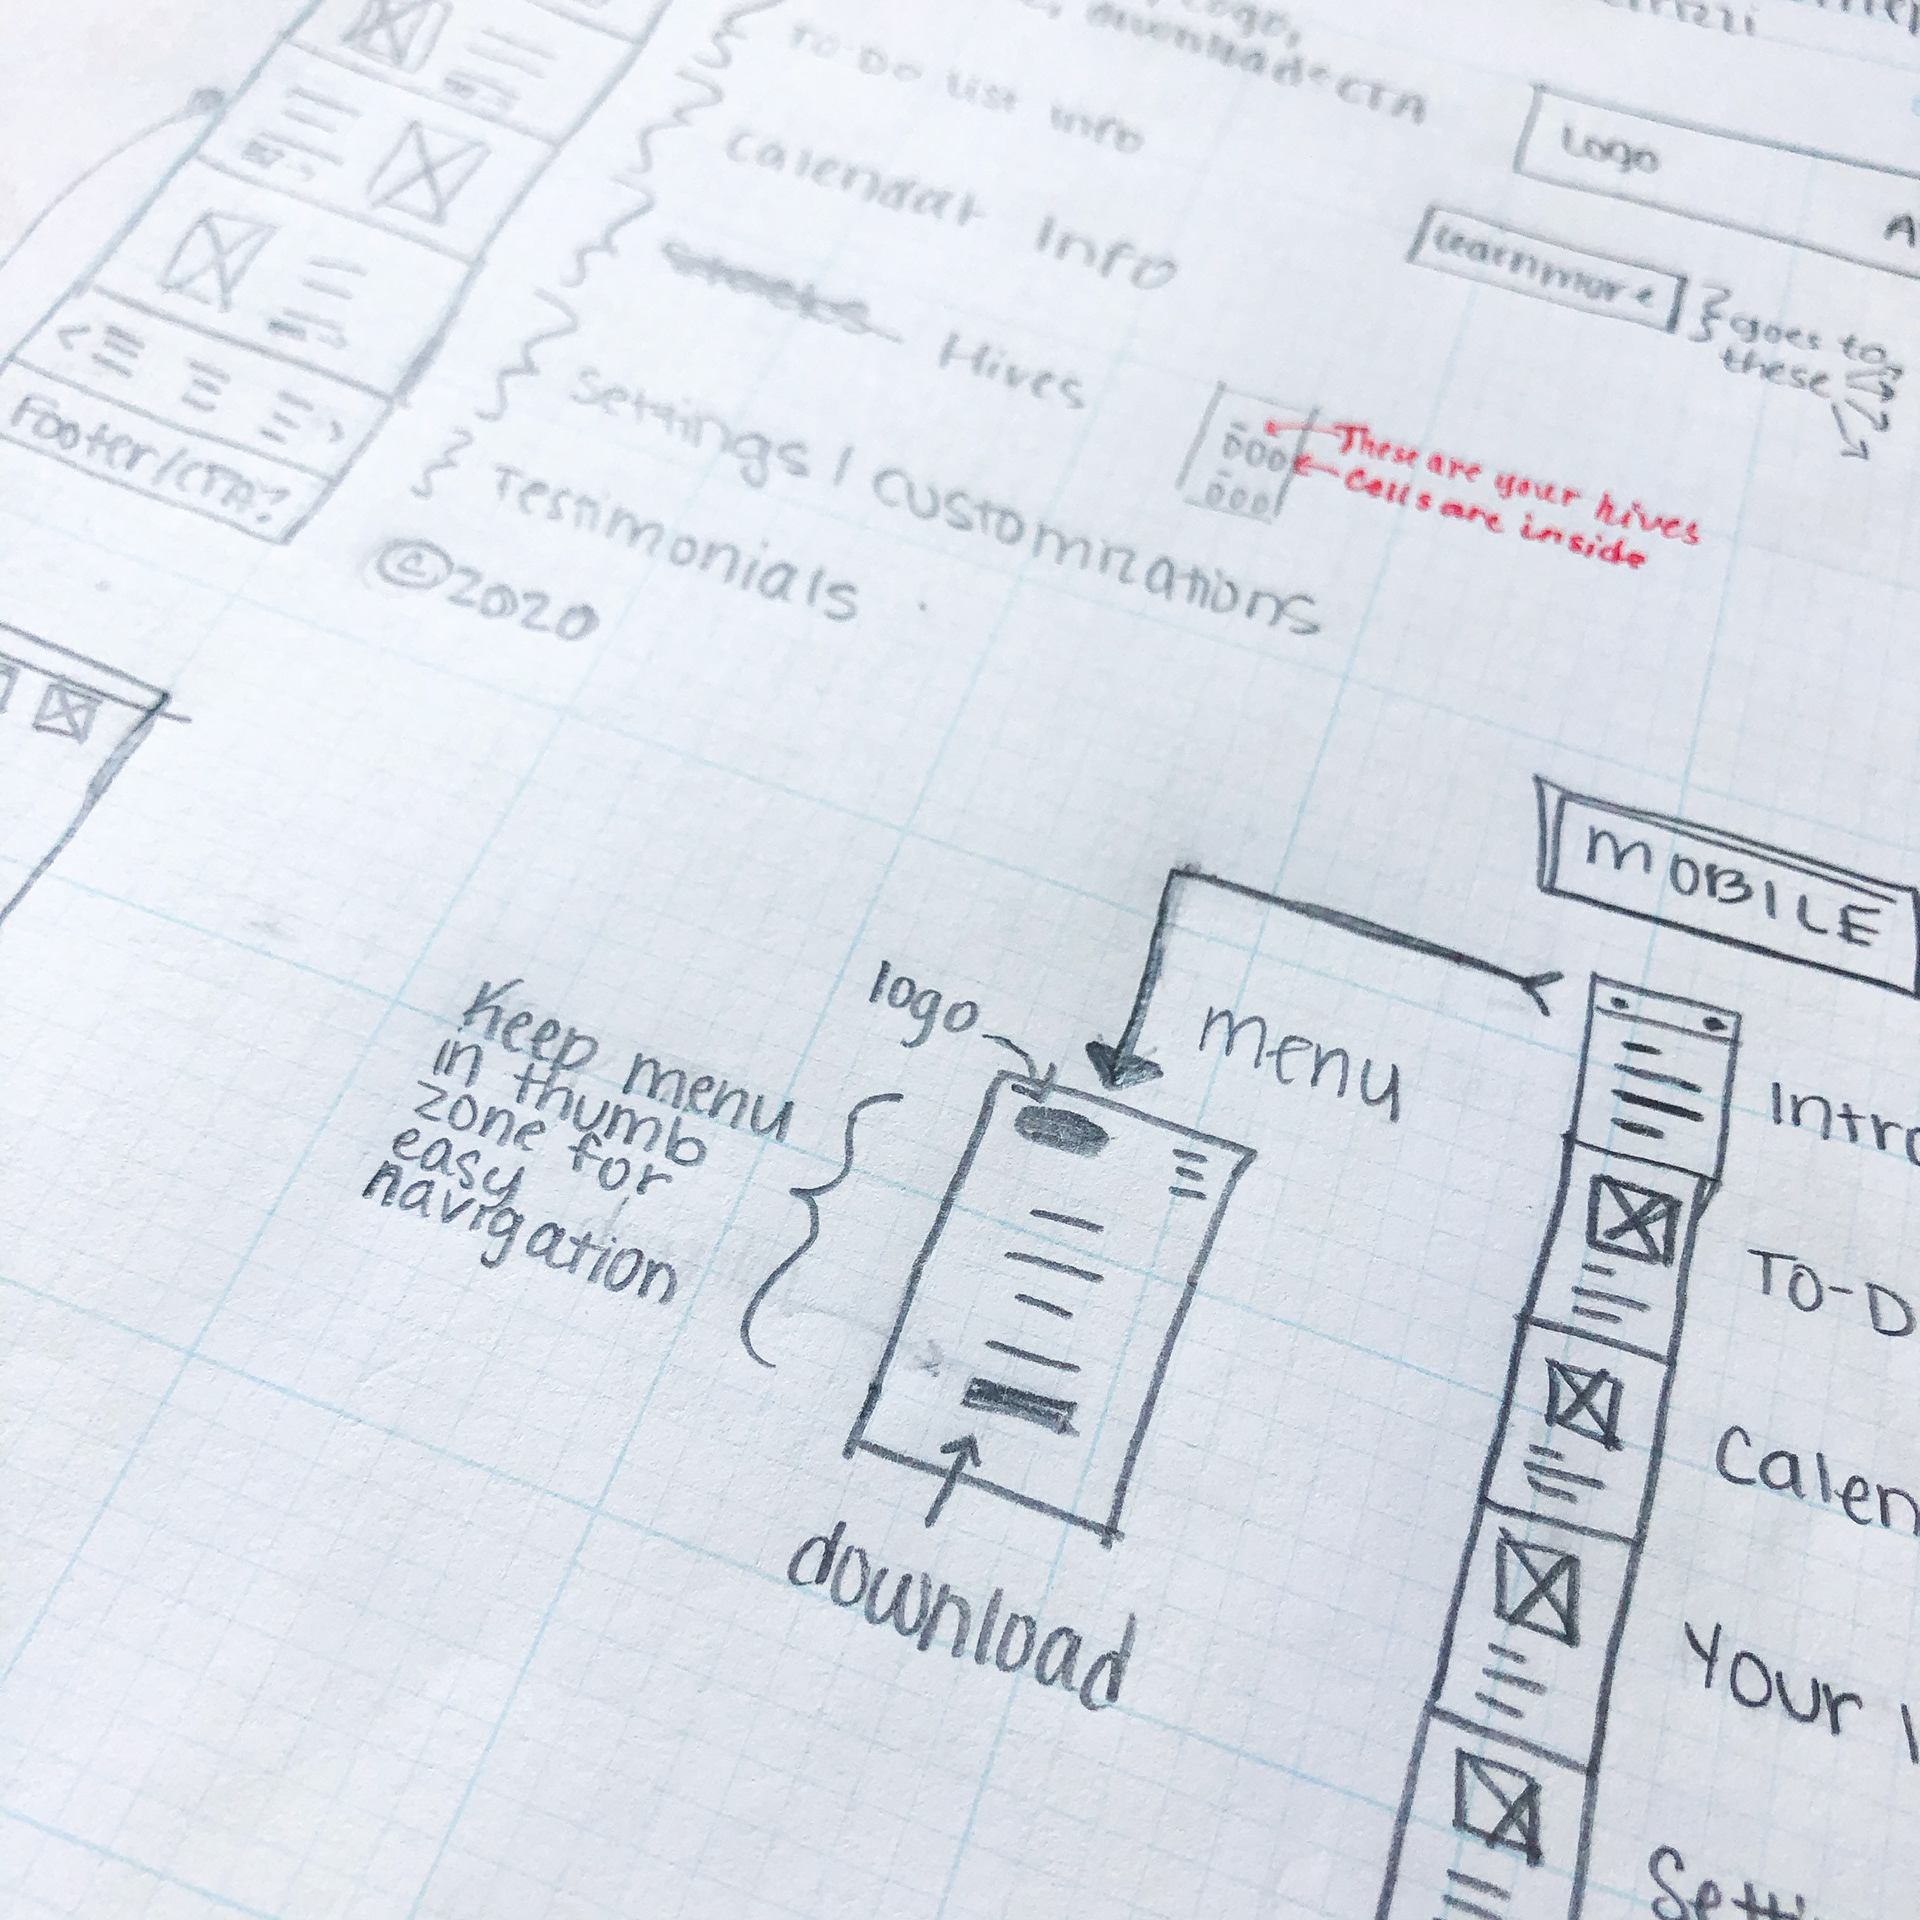 Logo,
download CTA
TO-DO List info
Calendar Info
Hives
Settings / Customizations
Testimonials
©2020
Footer/CTA?
Logo
Learn more
goes to
these
These are your hives
Cells are inside
MOBILE
logo
menu
Keep menu
in thumb
zone for
easy
navigation
download
Intro
TO-D
Calen
Your
Setti